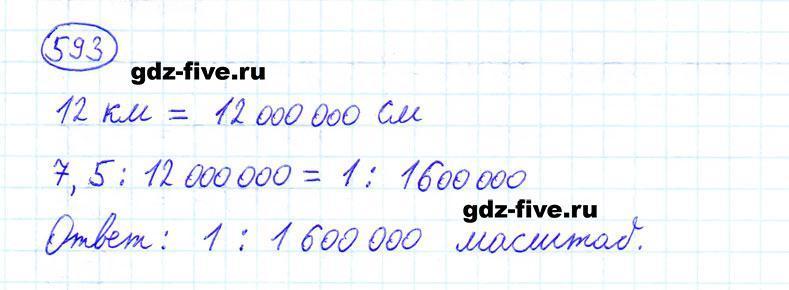 593
gdz-five.ru
12 км = 12 000 000 см
7,5 : 12 000 000 = 1 : 1600 000
gdz-five.ru
Ответ: 1 : 1 600 000 масштаб.